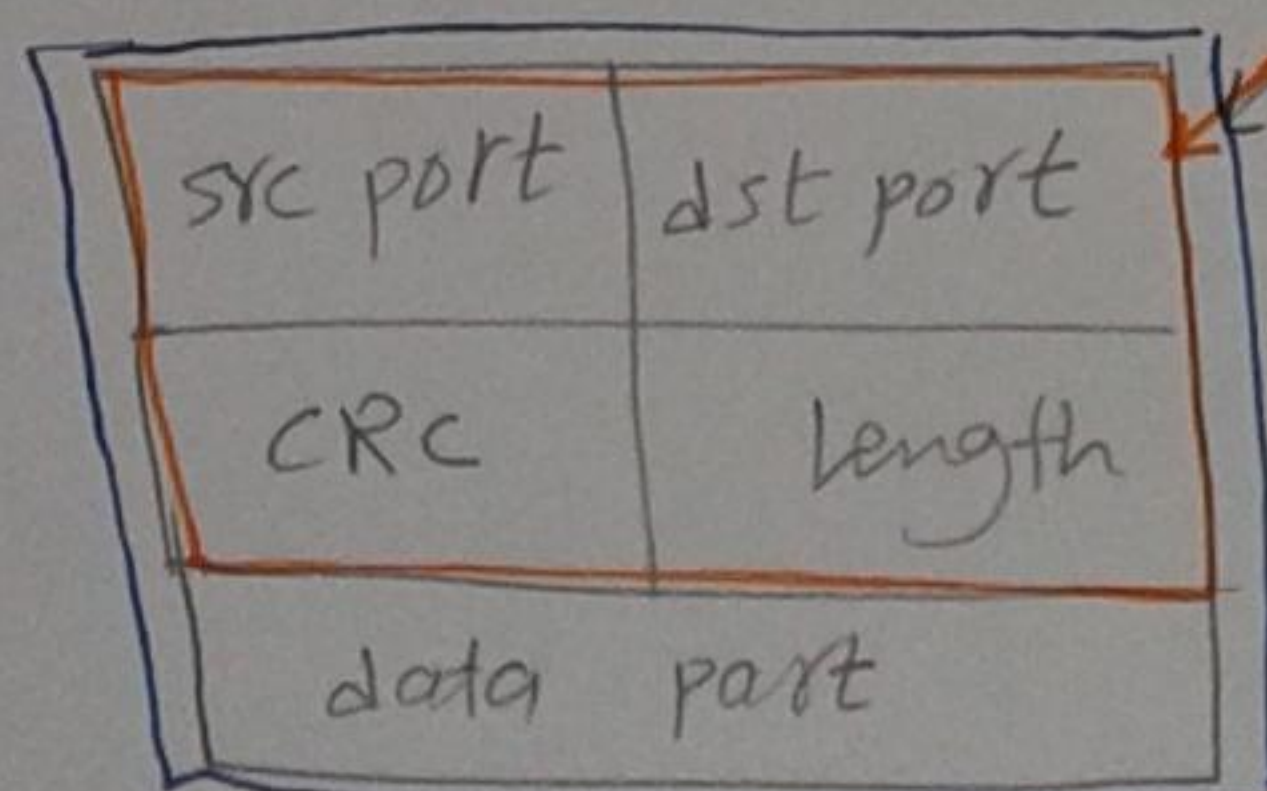 src port dst port
CRC Length
data part